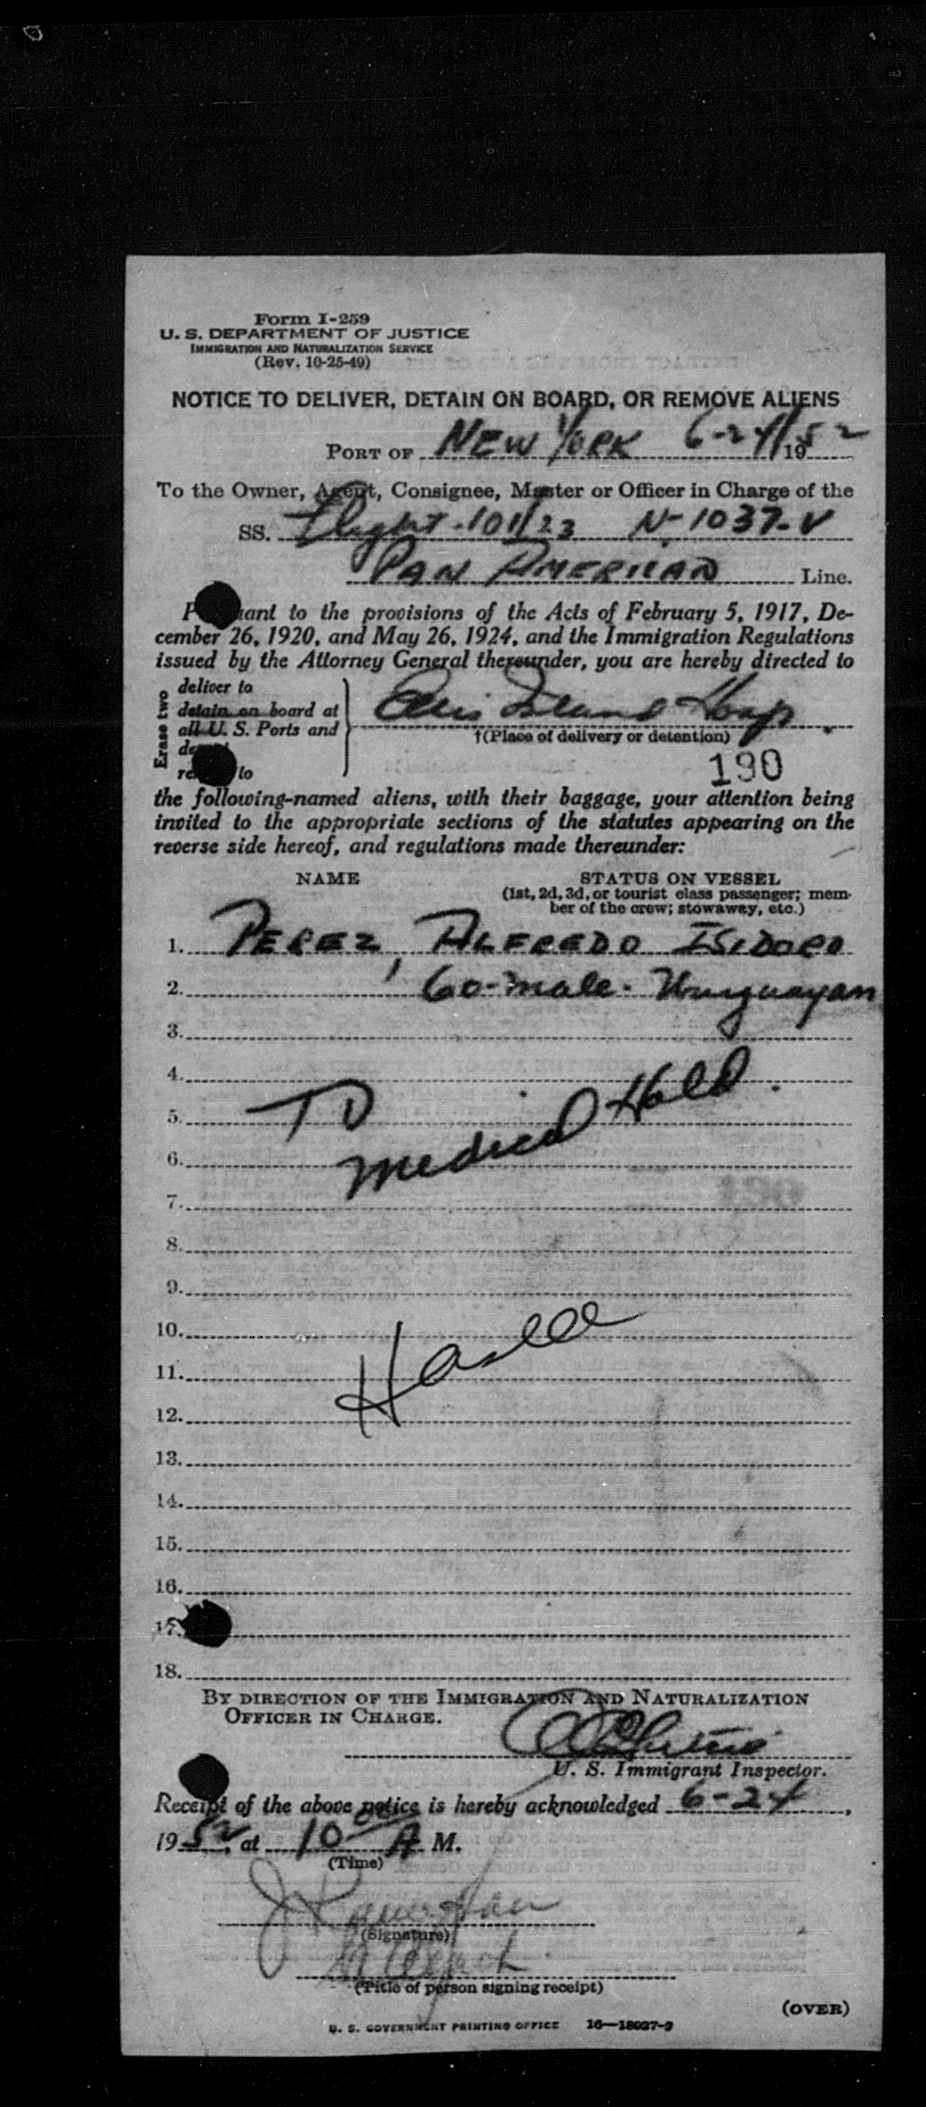 Form I-259
U. S. DEPARTMENT OF JUSTICE
IMMIGRATION AND NATURALIZATION SERVICE
(Rev. 10-25-49)
NOTICE TO DELIVER, DETAIN ON BOARD, OR REMOVE ALIENS
PORT OF NEW YORK 6-24 1952
To the Owner, Agent, Consignee, Master or Officer in Charge of the
SS. Flight-101/23 N-1037-V
PAN AMERICAN Line.
Pursuant to the provisions of the Acts of February 5, 1917, De-
cember 26, 1920, and May 26, 1924, and the Immigration Regulations
issued by the Attorney General thereunder, you are hereby directed to
Erase two
deliver to
detain on board at
all U. S. Ports and
Ellis Island Hosp.
†(Place of delivery or detention)
to
190
the following-named aliens, with their baggage, your attention being
invited to the appropriate sections of the statutes appearing on the
reverse side hereof, and regulations made thereunder:
NAME STATUS ON VESSEL
(1st, 2d, 3d, or tourist class passenger; mem-
ber of the crew; stowaway, etc.)
1. PEREZ, ALFREDO ISIDORO
2. 60-male- Uruguayan
3.
4.
5. TO
6. Medical Hold.
7.
8.
9.
10.
11.
12.
13.
14.
15.
16.
17.
18.
BY DIRECTION OF THE IMMIGRATION AND NATURALIZATION
OFFICER IN CHARGE.
U. S. Immigrant Inspector.
Receipt of the above notice is hereby acknowledged 6-24,
1952, at 10 00 A M.
(Time)
(Signature)
(Title of person signing receipt)
(OVER)
U. S. GOVERNMENT PRINTING OFFICE 16—18027-2